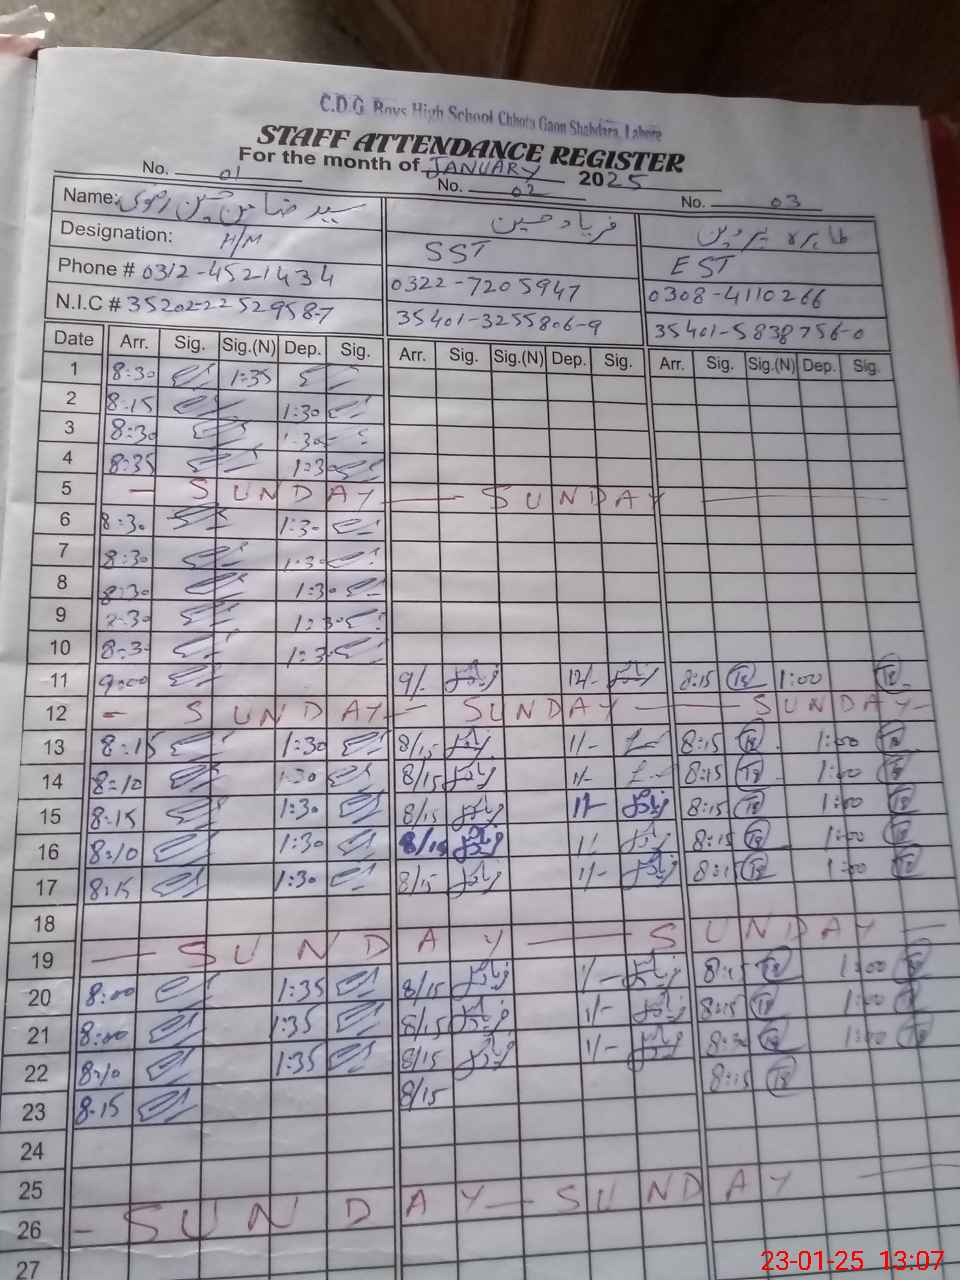 C.D.G. Boys High School Chhota Gaon Shahdara, Lahore
STAFF ATTENDANCE REGISTER
For the month of JANUARY 2025
No. 01 No. 02 No. 03
Name: سید ضامن حسین رضوی فریاد حسین طاہرہ پروین
Designation: H/M SST EST
Phone # 0312-4521434 0322-7205947 0308-4110266
N.I.C # 35202-2252958-7 35401-3255806-9 35401-5838756-0
Date Arr. Sig. Sig.(N) Dep. Sig. Arr. Sig. Sig.(N) Dep. Sig. Arr. Sig. Sig.(N) Dep. Sig.
1 8:30 1:35
2 8:15 1:30
3 8:30 1:30
4 8:35 1:30
5 — SUNDAY — SUNDAY —
6 8:30 1:30
7 8:30 1:30
8 8:30 1:30
9 8:30 1:30
10 8:30 1:30
11 9:00 9/- 12/- 8:15 1:00
12 — SUNDAY — SUNDAY — SUNDAY —
13 8:15 1:30 8/15 1/- 8:15 1:00
14 8:10 1:30 8/15 1/- 8:15 1:00
15 8:15 1:30 8/15 1/- 8:15 1:00
16 8:10 1:30 8/15 1/- 8:15 1:00
17 8:15 1:30 8/15 1/- 8:15 1:00
18
19 — SUNDAY — SUNDAY —
20 8:00 1:35 8/15 1/- 8:15 1:00
21 8:00 1:35 8/15 1/- 8:15 1:00
22 8:10 1:35 8/15 1/- 8:30 1:00
23 8:15 8/15 8:15
24
25
26 — SUNDAY — SUNDAY —
27
23-01-25 13:07